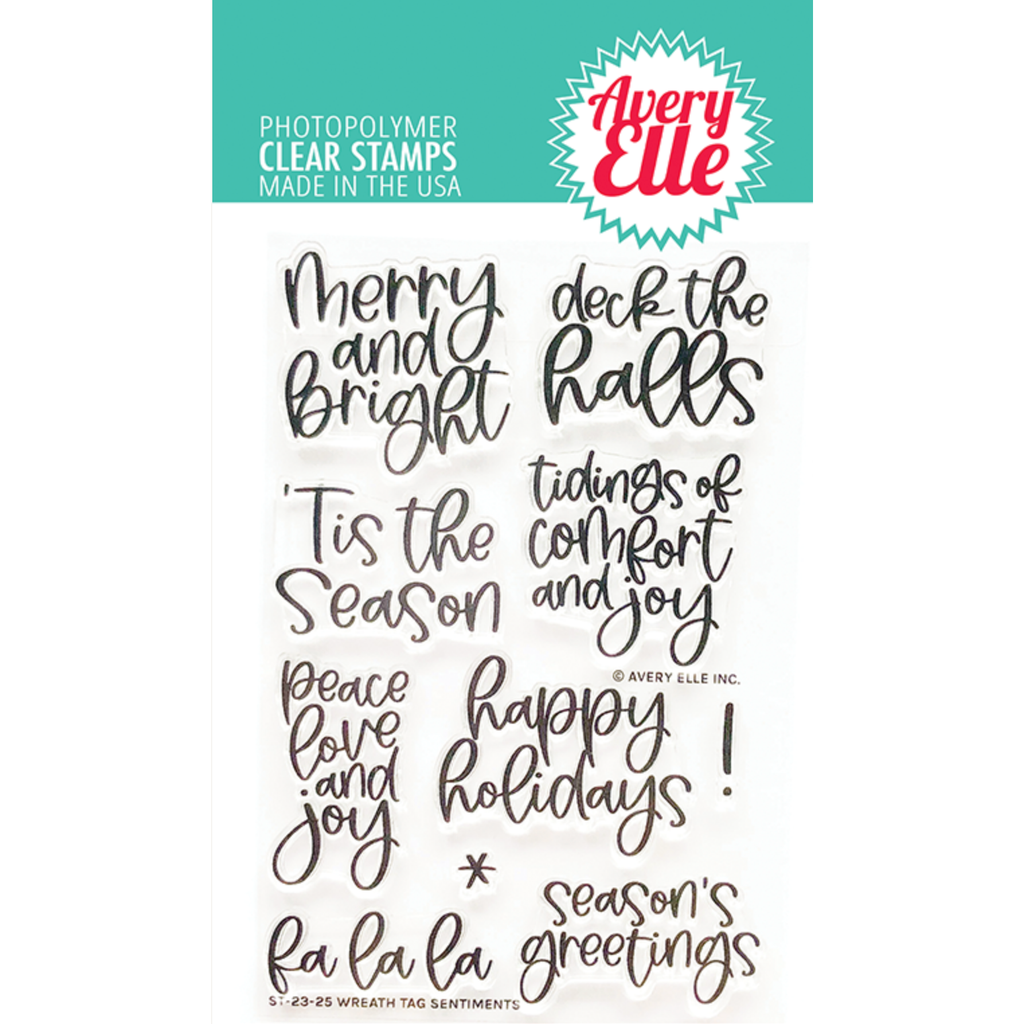 PHOTOPOLYMER
CLEAR STAMPS
MADE IN THE USA
Avery
Elle
Merry
and
Bright
deck the
halls
'Tis the
Season
tidings of
comfort
and joy
© AVERY ELLE INC.
peace
love
and
joy
happy
holidays
!
*
fa la la
season's
greetings
ST-23-25 WREATH TAG SENTIMENTS